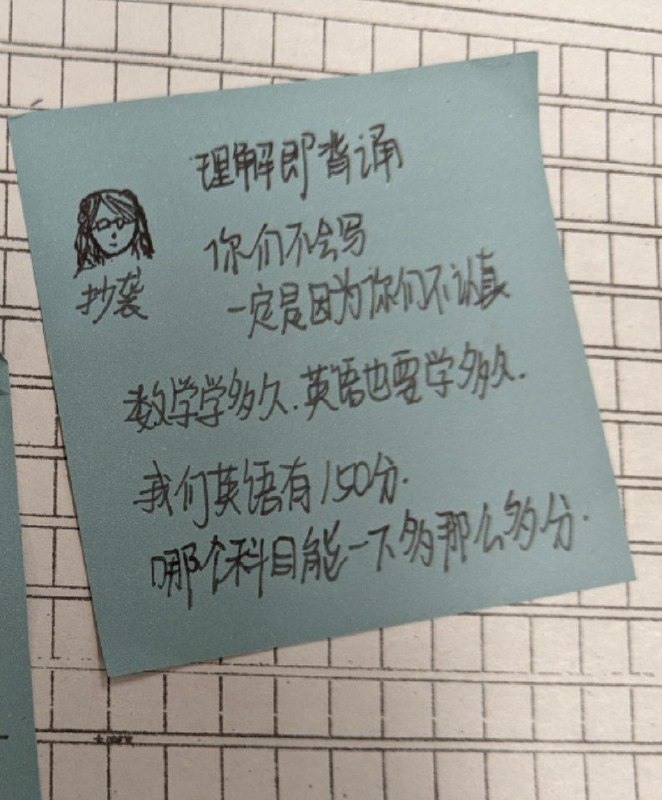 理解即背诵
你们不会写
一定是因为你们不认真
抄袭
数学学多久.英语也要学多久.
我们英语有150分.
哪个科目能一下多那么多分.